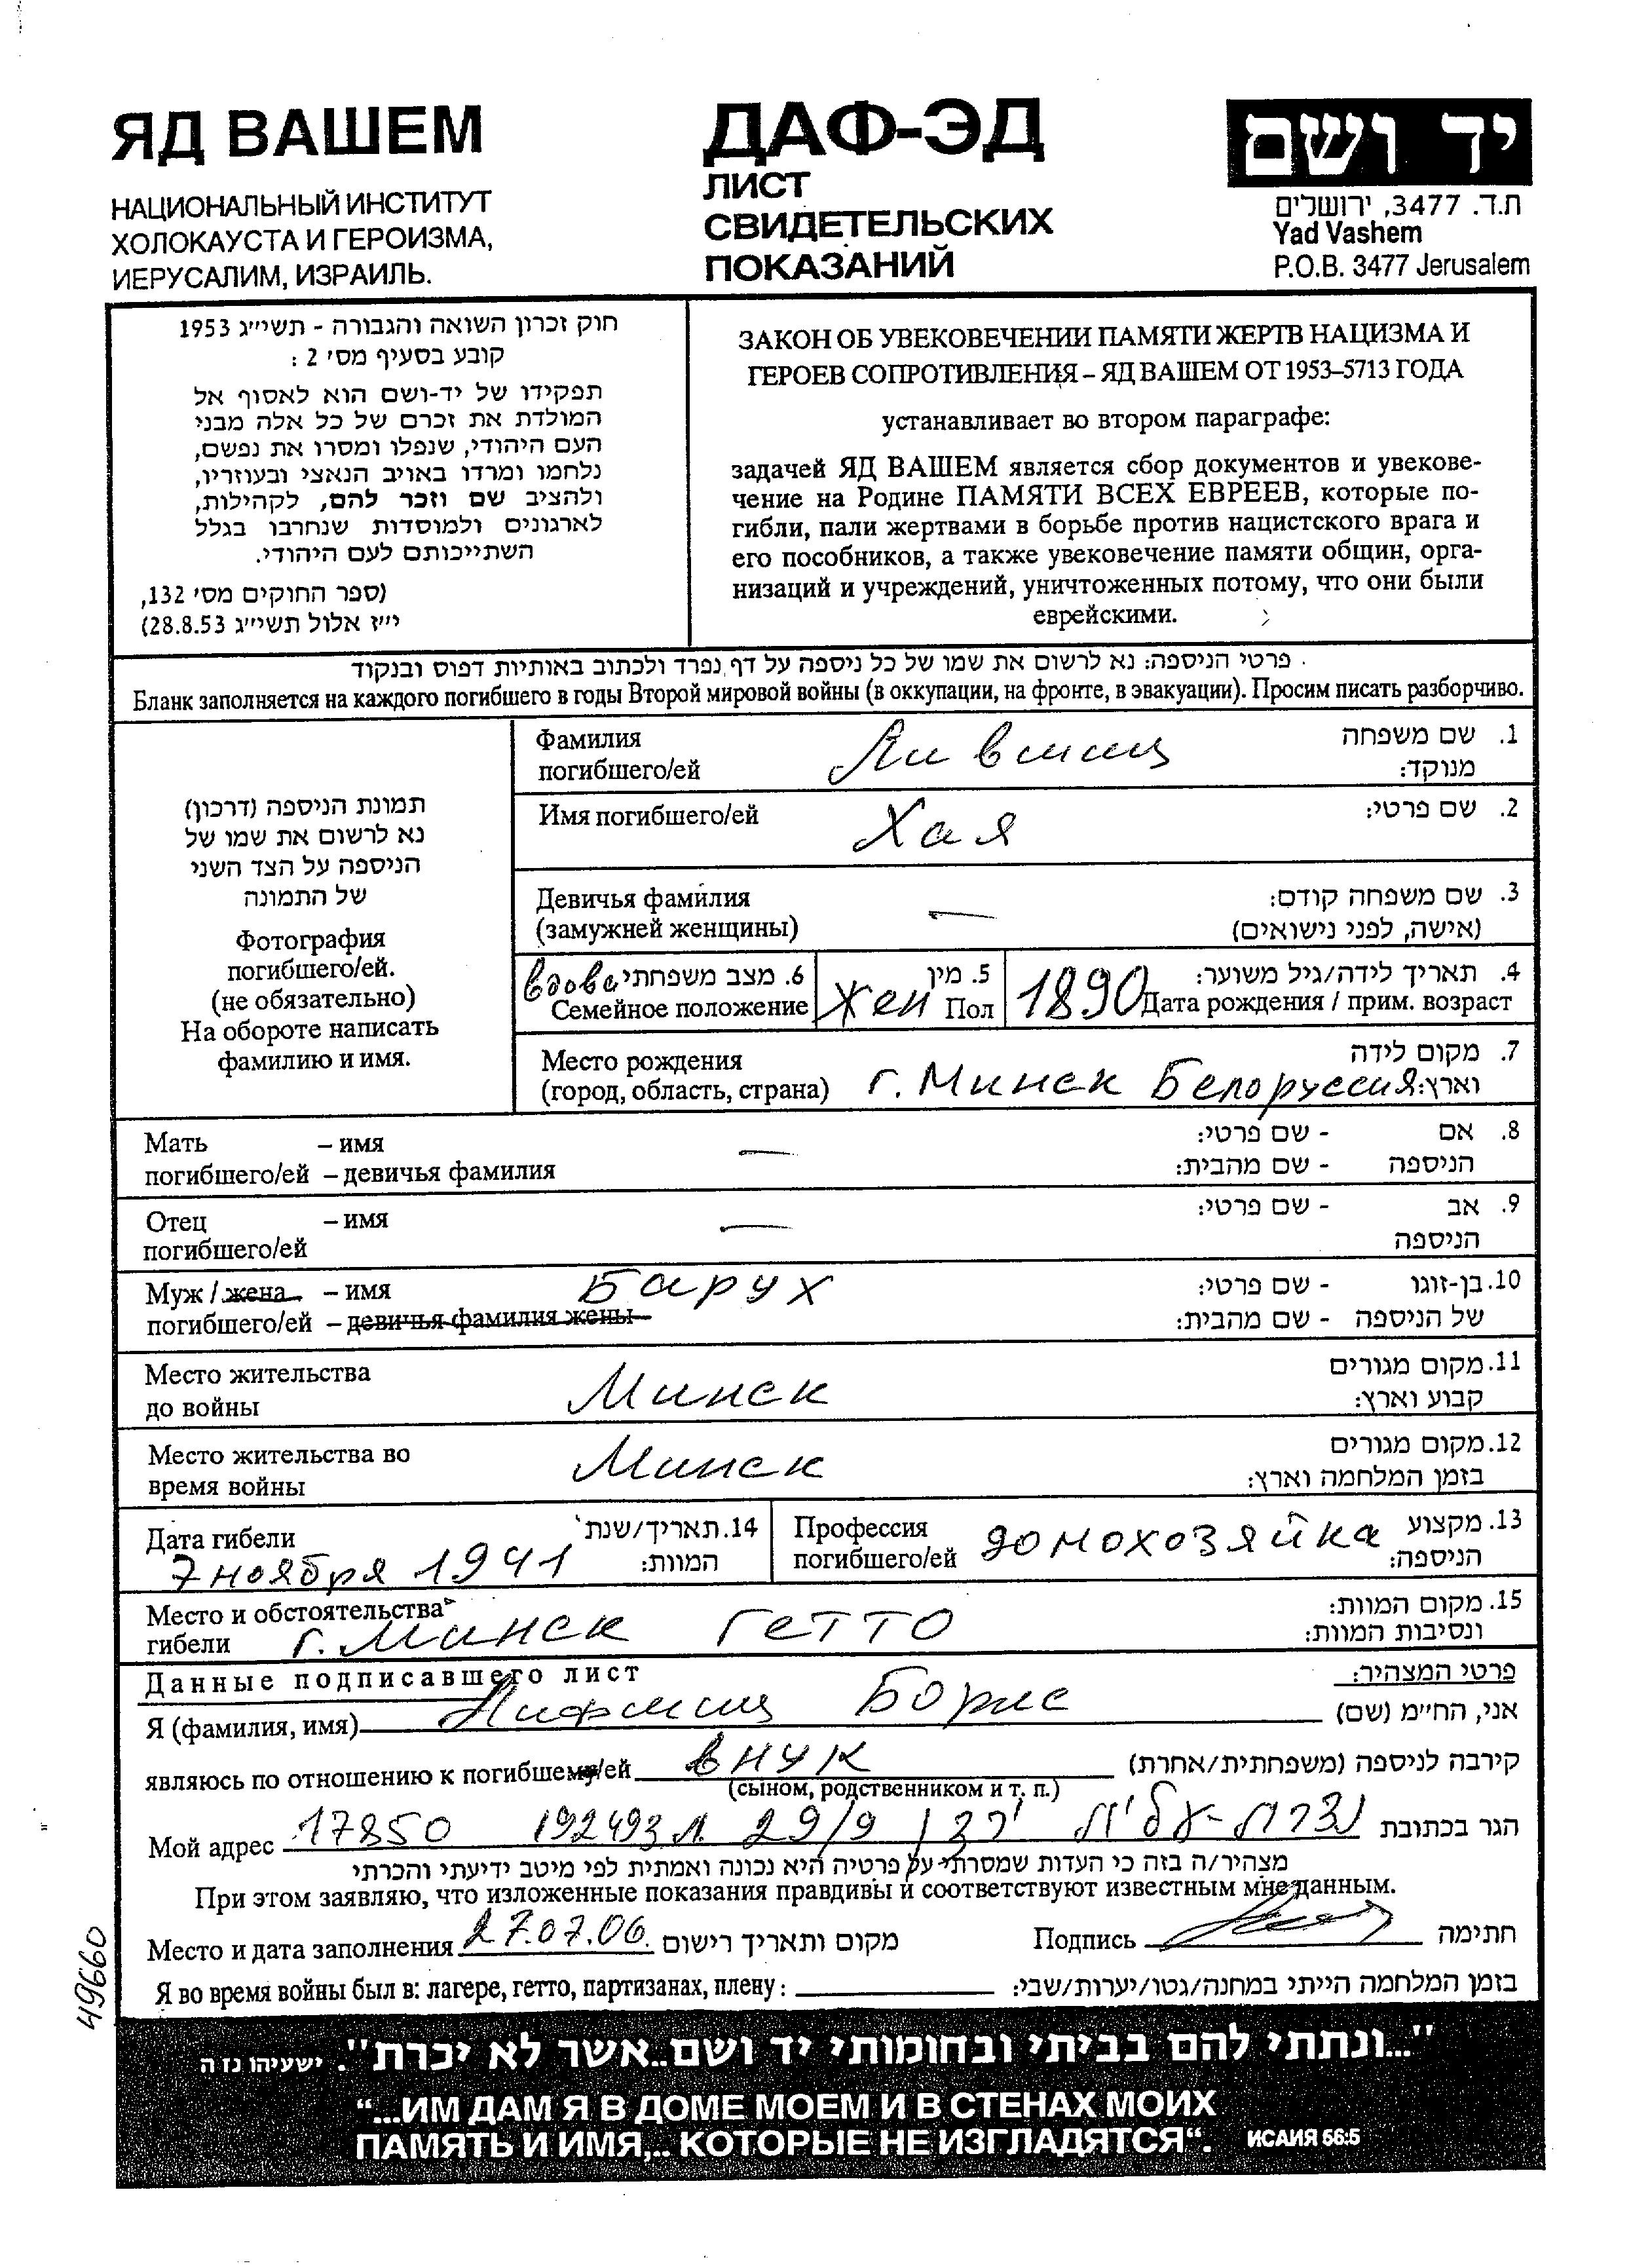 ЯД ВАШЕМ
НАЦИОНАЛЬНЫЙ ИНСТИТУТ
ХОЛОКАУСТА И ГЕРОИЗМА,
ИЕРУСАЛИМ, ИЗРАИЛЬ.
ДАФ-ЭД
ЛИСТ
СВИДЕТЕЛЬСКИХ
ПОКАЗАНИЙ
יד ושם
ת.ד. 3477, ירושלים
Yad Vashem
P.O.B. 3477 Jerusalem
חוק זכרון השואה והגבורה - תשי״ג 1953
קובע בסעיף מס׳ 2 :
תפקידו של יד-ושם הוא לאסוף אל
המולדת את זכרם של כל אלה מבני
העם היהודי, שנפלו ומסרו את נפשם,
נלחמו ומרדו באויב הנאצי ובעוזריו,
ולהציב שם וזכר להם, לקהילות,
לארגונים ולמוסדות שנחרבו בגלל
השתייכותם לעם היהודי.
(ספר החוקים מס׳ 132,
י״ז אלול תשי״ג 28.8.53)
ЗАКОН ОБ УВЕКОВЕЧЕНИИ ПАМЯТИ ЖЕРТВ НАЦИЗМА И
ГЕРОЕВ СОПРОТИВЛЕНИЯ – ЯД ВАШЕМ ОТ 1953–5713 ГОДА
устанавливает во втором параграфе:
задачей ЯД ВАШЕМ является сбор документов и увекове-
чение на Родине ПАМЯТИ ВСЕХ ЕВРЕЕВ, которые по-
гибли, пали жертвами в борьбе против нацистского врага и
его пособников, а также увековечение памяти общин, орга-
низаций и учреждений, уничтоженных потому, что они были
еврейскими.
פרטי הניספה: נא לרשום את שמו של כל ניספה על דף נפרד ולכתוב באותיות דפוס ובנקוד
Бланк заполняется на каждого погибшего в годы Второй мировой войны (в оккупации, на фронте, в эвакуации). Просим писать разборчиво.
תמונת הניספה (דרכון)
נא לרשום את שמו של
הניספה על הצד השני
של התמונה
Фотография
погибшего/ей.
(не обязательно)
На обороте написать
фамилию и имя.
Фамилия Лившиц 1. שם משפחה
погибшего/ей מנוקד:
Имя погибшего/ей Хая 2. שם פרטי:
Девичья фамилия — 3. שם משפחה קודם:
(замужней женщины) (אישה, לפני נישואים)
вдова 6. מצב משפחתי
Семейное положение
Жен 5. מין
Пол
1890 4. תאריך לידה/גיל משוער:
Дата рождения / прим. возраст
Место рождения 7. מקום לידה
(город, область, страна) г. Минск Белоруссия וארץ:
Мать – имя — 8. אם - שם פרטי:
погибшего/ей – девичья фамилия הניספה - שם מהבית:
Отец – имя — 9. אב - שם פרטי:
погибшего/ей הניספה
Муж / жена – имя Барух 10. בן-זוגו - שם פרטי:
погибшего/ей – девичья фамилия жены של הניספה - שם מהבית:
Место жительства Минск 11. מקום מגורים
до войны קבוע וארץ:
Место жительства во Минск 12. מקום מגורים
время войны בזמן המלחמה וארץ:
Дата гибели 14. תאריך/שנת
7 ноября 1941 המוות:
Профессия домохозяйка 13. מקצוע
погибшего/ей הניספה:
Место и обстоятельства 15. מקום המוות:
гибели г. Минск гетто ונסיבות המוות:
Данные подписавшего лист פרטי המצהיר:
Я (фамилия, имя) Лифшиц Борис אני, הח״מ (שם)
являюсь по отношению к погибшему/ей внук קירבה לניספה (משפחתית/אחרת)
(сыном, родственником и т. п.)
Мой адрес 17850 29/9 נצרת-עלית הגר בכתובת
מצהיר/ה בזה כי העדות שמסרתי על פרטיה היא נכונה ואמתית לפי מיטב ידיעתי והכרתי
При этом заявляю, что изложенные показания правдивы и соответствуют известным мне данным.
Место и дата заполнения 27.07.06. מקום ותאריך רישום Подпись חתימה
Я во время войны был в: лагере, гетто, партизанах, плену: בזמן המלחמה הייתי במחנה/גטו/יערות/שבי:
49660
"...ונתתי להם בביתי ובחומותי יד ושם..אשר לא יכרת". ישעיהו נז ה
“...ИМ ДАМ Я В ДОМЕ МОЕМ И В СТЕНАХ МОИХ
ПАМЯТЬ И ИМЯ,.. КОТОРЫЕ НЕ ИЗГЛАДЯТСЯ“. ИСАИЯ 56:5